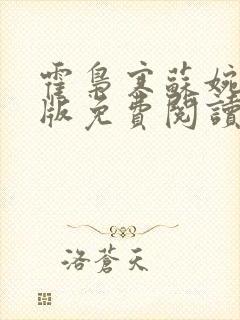 霍梟寒蘇婉
版免費閱讀
洛蒼天